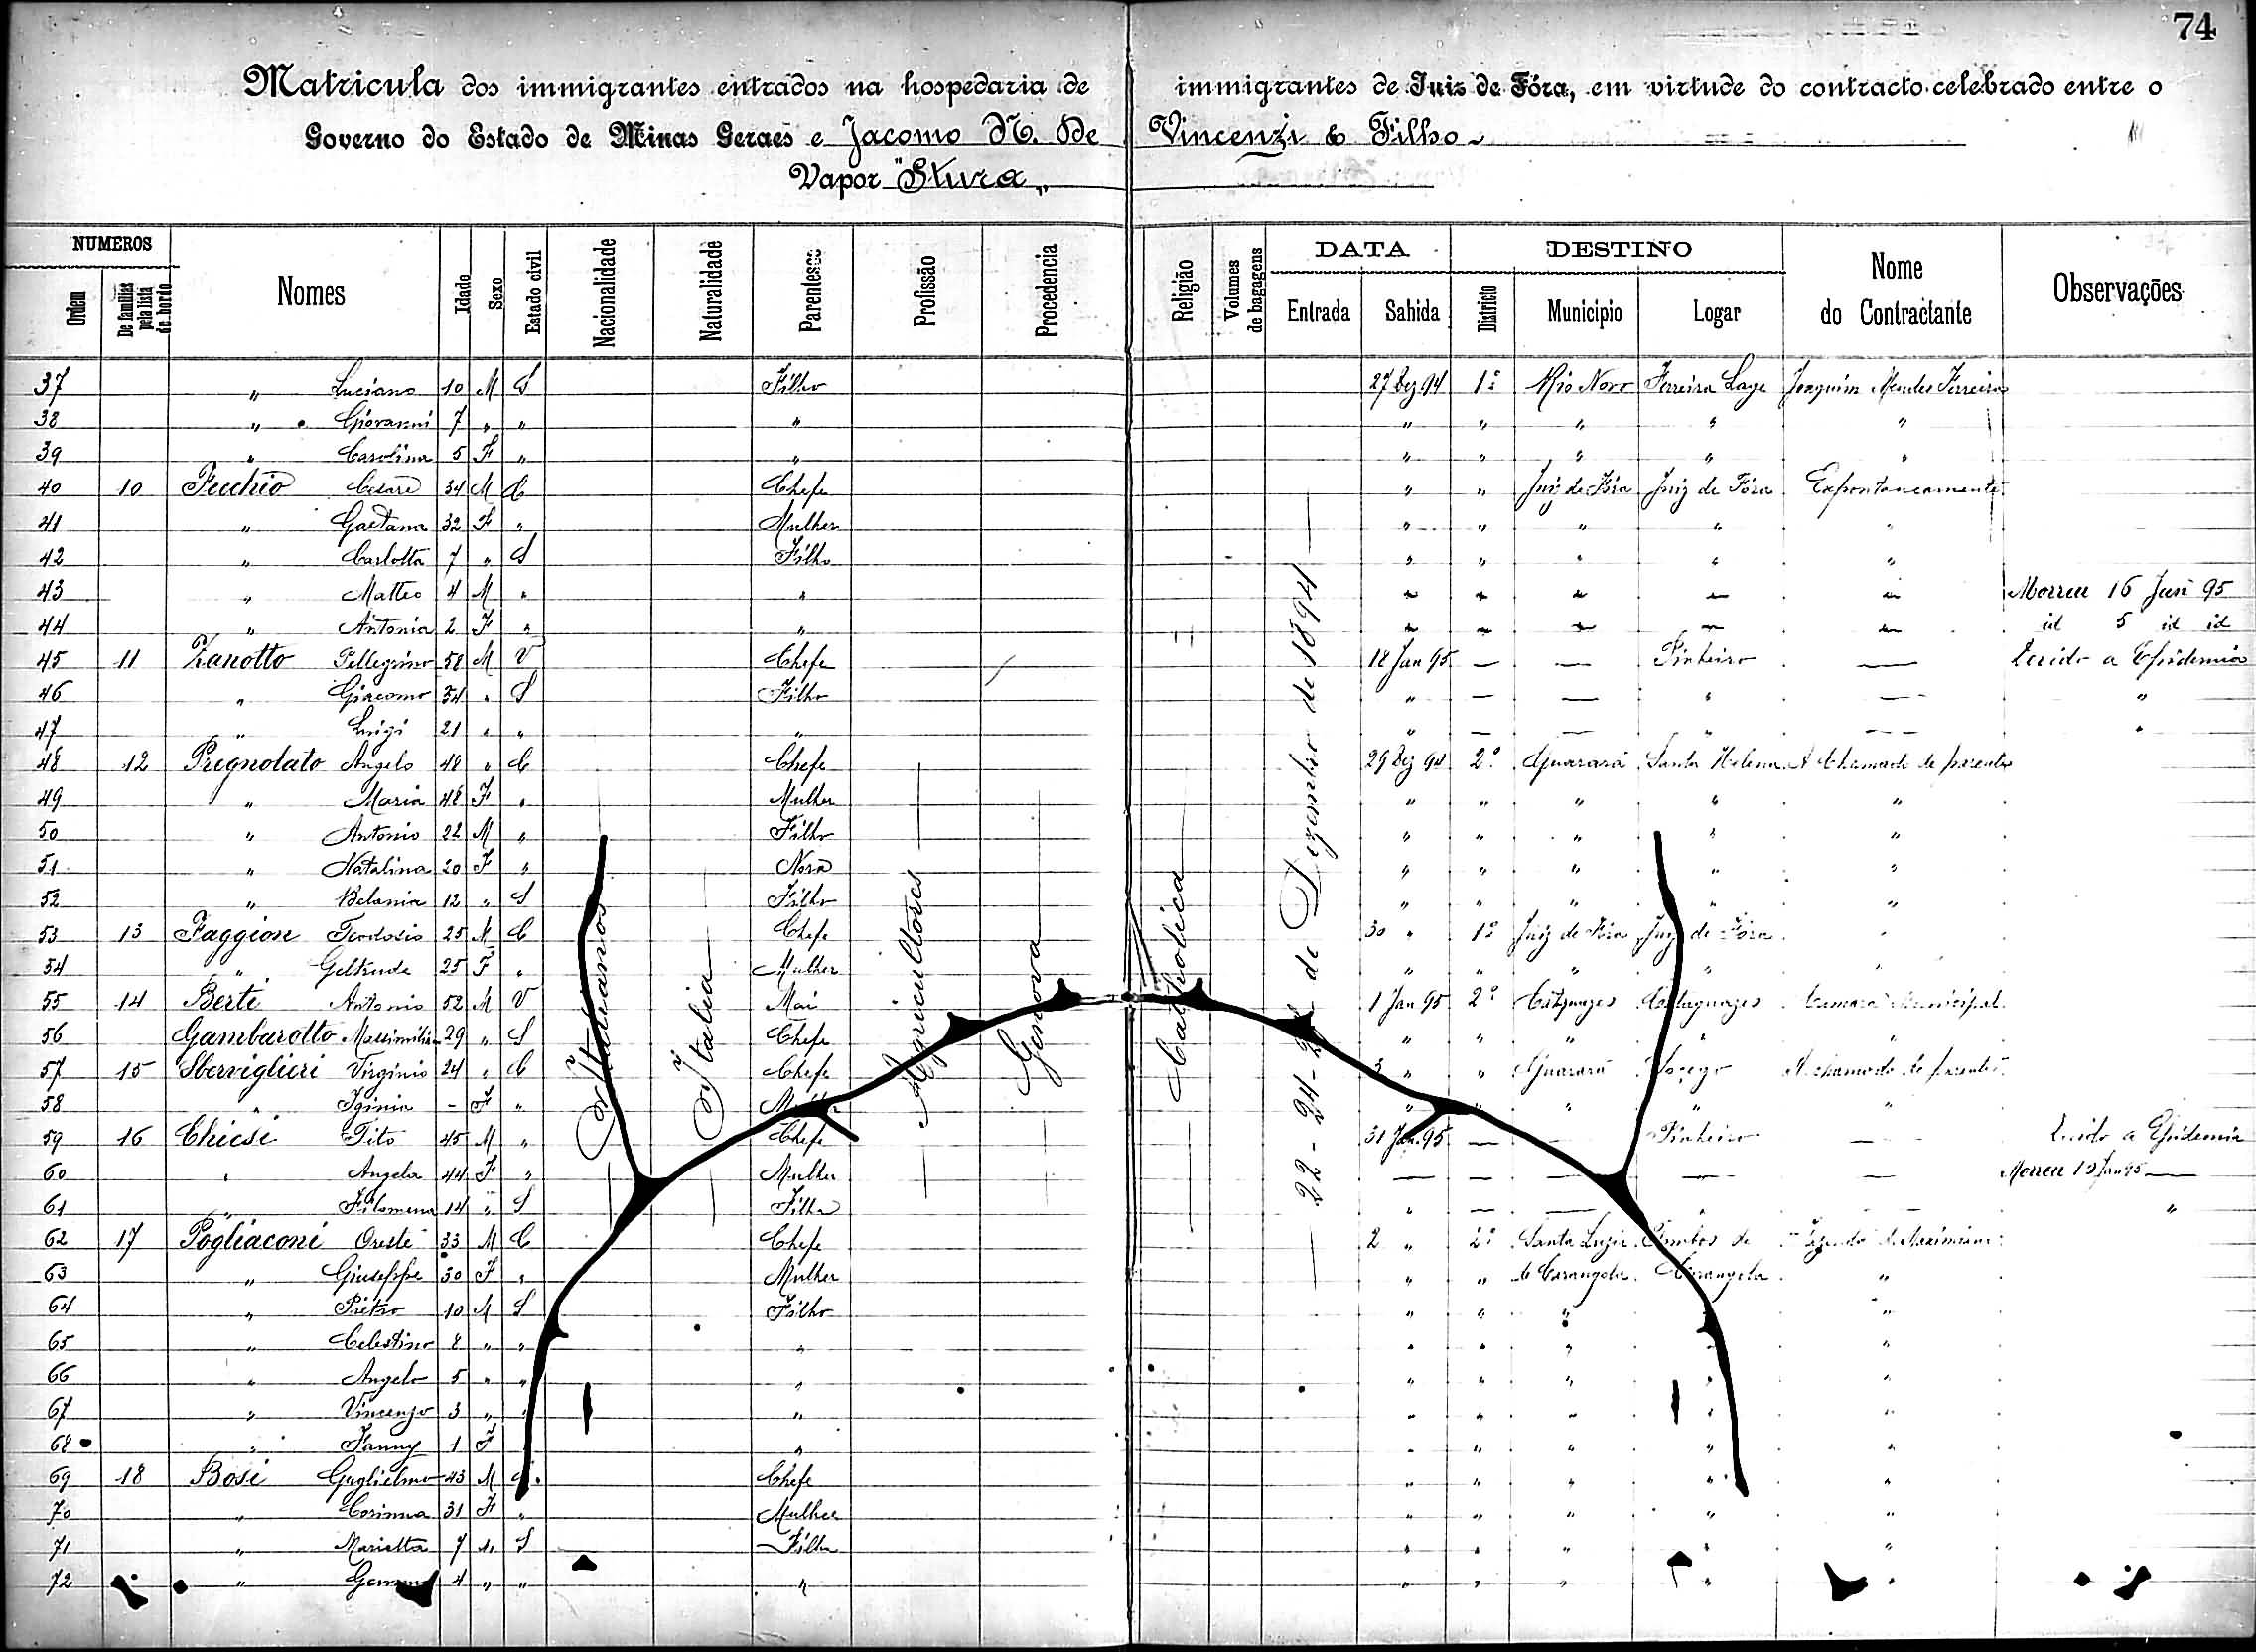 74
Matricula dos immigrantes entrados na hospedaria de immigrantes de Juiz de Fóra, em virtude do contracto celebrado entre o
Governo do Estado de Minas Geraes e Jacomo N. De Vincenzi & Filho
Vapor "Stura"
NUMEROS DATA DESTINO
Ordem De familias pela lista de bordo Nomes Idade Sexo Estado civil Nacionalidade Naturalidade Parentesco Profissão Procedencia Religião Volumes de bagagens Entrada Sahida Districto Municipio Logar Nome do Contractante Observações
Italianos Italia Agricultores Genova Catholica de Dezembro de 1894
37 " Luciano 10 M S Filho 27 Dez 94 1º Rio Novo Ferreira Lage Joaquim Mendes Ferreira
38 " Giovanni 7 " " " " " " " "
39 " Carolina 5 F " " " " " " "
40 10 Fecchio Cesare 34 M C Chefe " " Juiz de Fóra Juiz de Fóra Expontaneamente
41 " Gaetana 32 F " Mulher " " " " "
42 " Carlotta 7 " S Filho " " " " "
43 " Matteo 4 M " " " " " " " Morreu 16 Jan 95
44 " Antonia 2 F " " " " " " " id 5 id id
45 11 Zanotto Pellegrino 58 M V Chefe 18 Jan 95 — — Pinheiro — Devido a Epidemia
46 " Giacomo 34 " S Filho " — — " — "
47 " Luigi 21 " " " " — — " — "
48 12 Pregnolato Angelo 48 " C Chefe 29 Dez 94 2º Guarará Santa Helena A Chamado de parente
49 " Maria 48 F " Mulher " " " " "
50 " Antonio 22 M " Filho " " " " "
51 " Natalina 20 F " Nora " " " " "
52 " Belania 12 " S Filho " " " " "
53 13 Faggion Teodosio 25 M C Chefe 30 " 1º Juiz de Fóra Juiz de Fóra "
54 " Geltrude 25 F " Mulher " " " " "
55 14 Berti Antonio 52 M V Mai 1 Jan 95 2º Catagnazes Cataguazes Camara Municipal
56 Gambarotto 29 " S Chefe " " " " "
57 15 Sberviglieri Virginio 24 " C Chefe 3 " " Guarará Socego A chamado de parente
58 " Iginia - F " " " " " "
59 16 Chiesi Tito 45 M " Chefe 31 Jan 95 — — Pinheiro — Devido a Epidemia
60 " Angela 44 F " Mulher — — — — — Morreu Jan 95 —
61 " Filomena 14 " S Filha " — — " — "
62 17 Pogliaconi Oreste 33 M C Chefe 2 " 2º Santa Luzia Tombos de
63 " Giuseppe 30 F " Mulher " " de Carangola Carangola "
64 " Pietro 10 M S Filho " " " " "
65 " Celestino 8 " " " " " " " "
66 " Angelo 5 " " " " " " " "
67 " Vincenzo 3 " " " " " " " "
68 " Fanny 1 F " " " " " "
69 18 Bosi Guglielmo 43 M C Chefe " " " " "
70 " Corinna 31 F " Mulher " " " " "
71 " Marietta 7 " S Filha " " " " "
72 " 4 " " " " " " " "